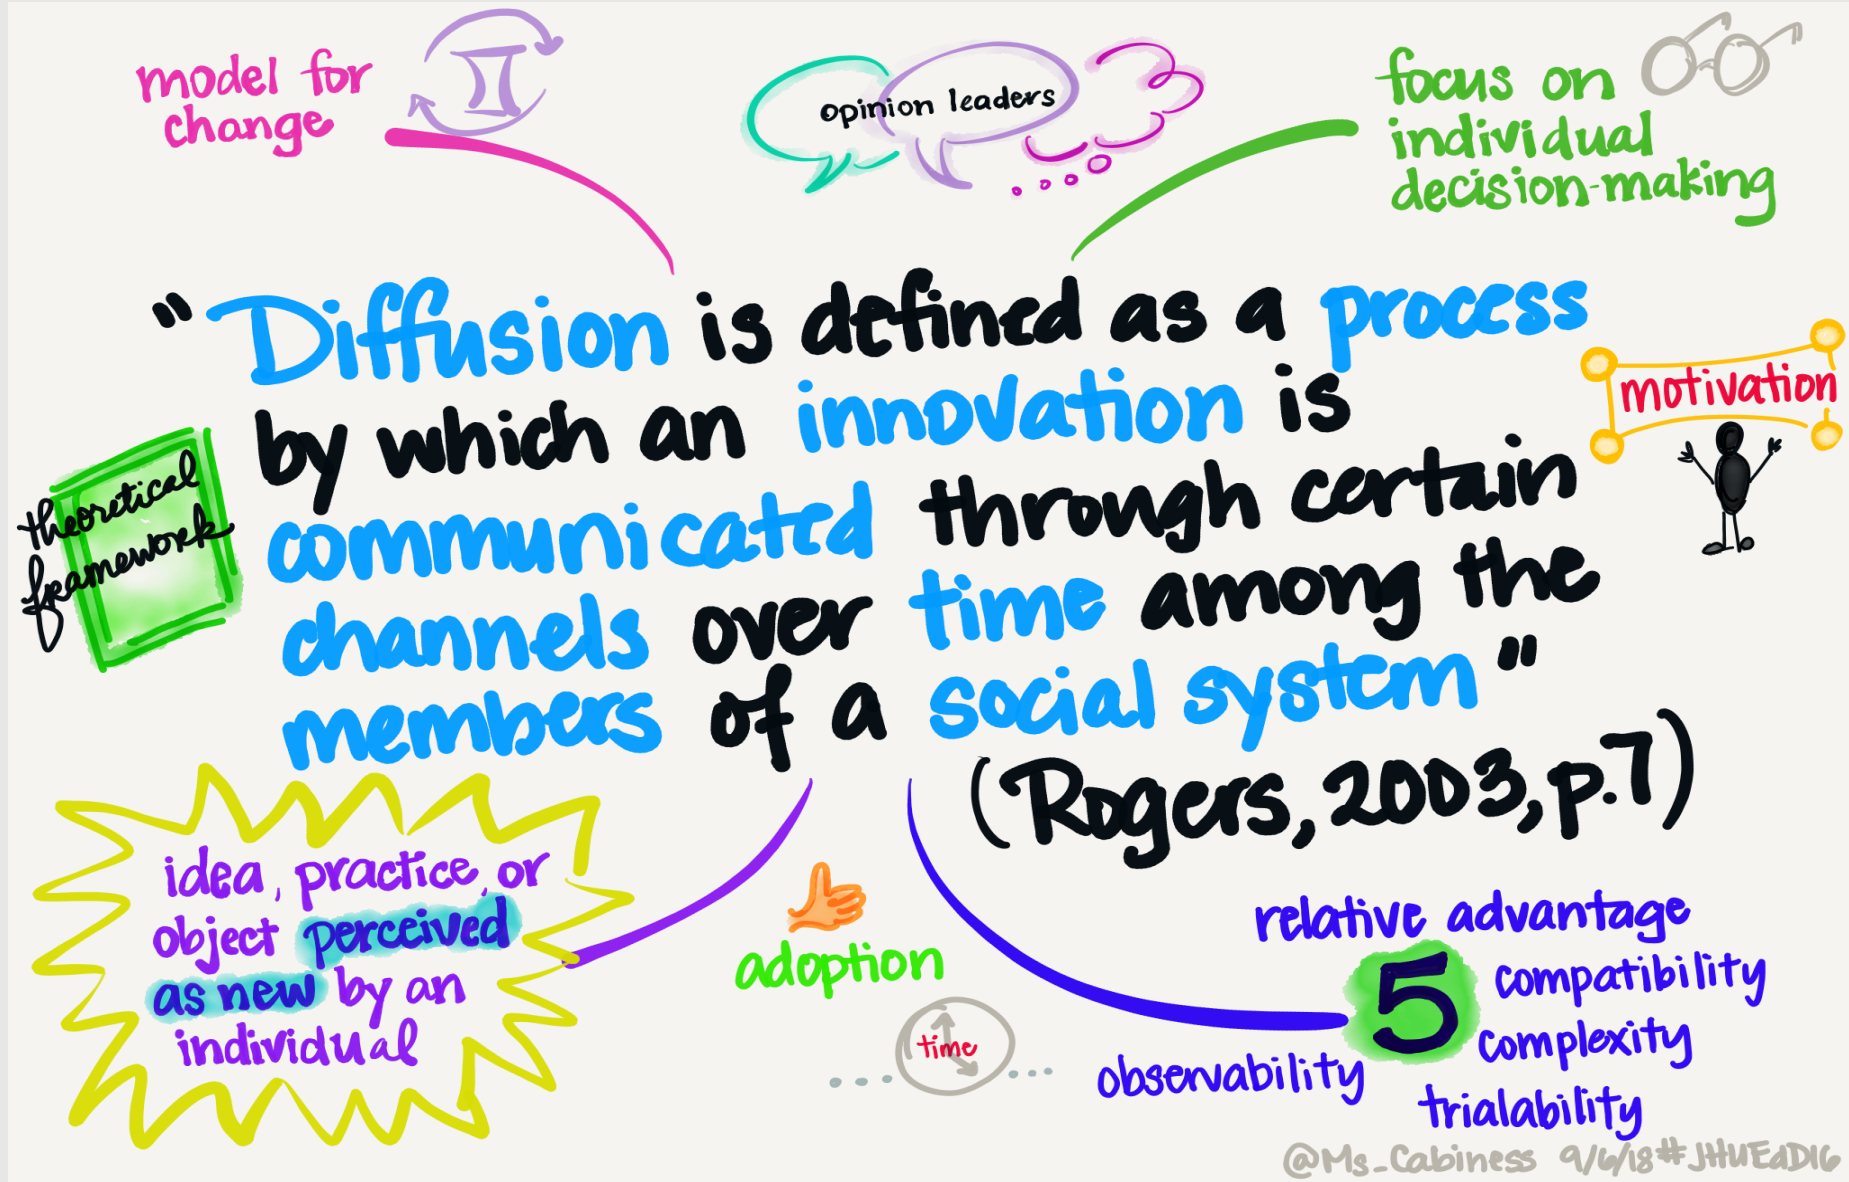 model for
change
opinion leaders
focus on
individual
decision-making
"Diffusion is defined as a process
by which an innovation is
communicated through certain
channels over time among the
members of a social system"
(Rogers, 2003, p.7)
motivation
theoretical
framework
idea, practice, or
object perceived
as new by an
individual
adoption
time
5
relative advantage
compatibility
complexity
trialability
observability
@Ms_Cabiness 9/6/18 #JHUEdD16